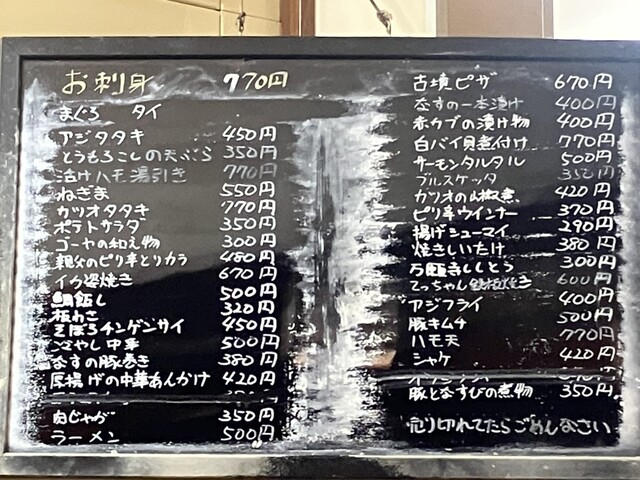 お刺身 770円
まぐろ タイ
アジタタキ 450円
とうもろこしの天ぷら 350円
活けハモ湯引き 770円
ねぎま 550円
カツオタタキ 770円
ポテトサラダ 350円
ゴーヤの和え物 300円
親父のピリ辛とりカラ 480円
イカ姿焼き 670円
鯛飯し 500円
板わさ 320円
そぼろチンゲンサイ 450円
冷やし中華 500円
なすの豚巻き 380円
厚揚げの中華あんかけ 420円
肉じゃが 350円
ラーメン 500円
古墳ピザ 670円
なすの一本漬け 400円
赤カブの漬け物 400円
白バイ貝煮付け 770円
サーモンタルタル 500円
ブルスケッタ 350円
カツオの山椒煮 420円
ピリ辛ウインナー 370円
揚げシューマイ 290円
焼きしいたけ 380円
万願寺ししとう 300円
てっちゃん 600円
アジフライ 400円
豚キムチ 500円
ハモ天 770円
シャケ 420円
豚となすびの煮物 350円
売り切れてたらごめんなさい